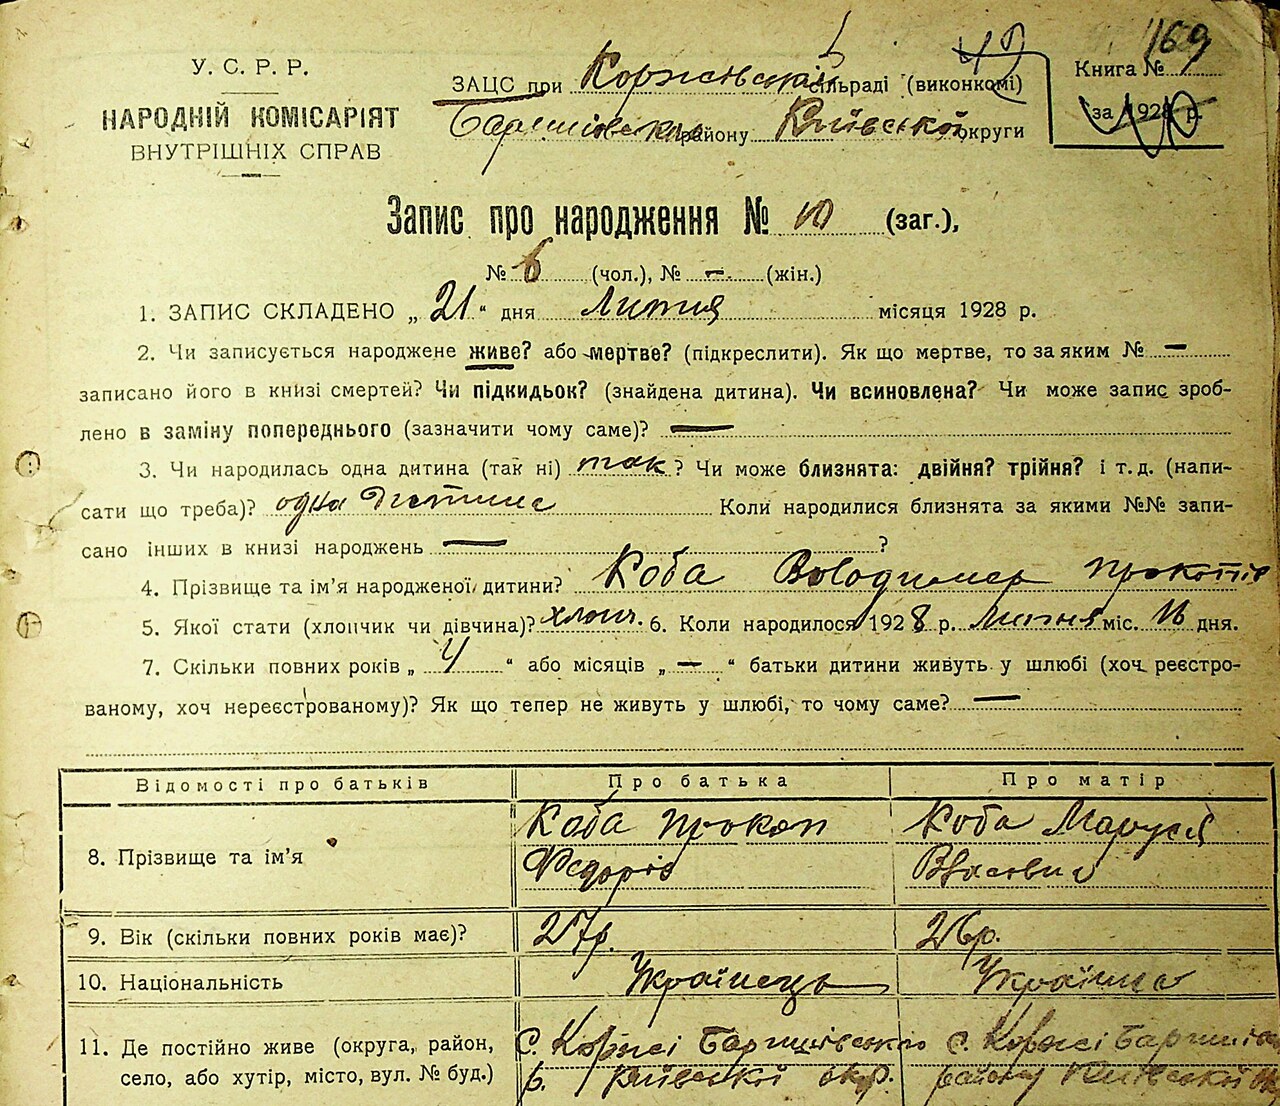 У. С. Р. Р.
НАРОДНІЙ КОМІСАРІЯТ
ВНУТРІШНІХ СПРАВ
ЗАЦС при Коржівській сільраді (виконкомі)
Баришівськ району Київської округи
Книга № 169
за 1928 р.
Запис про народження № 10 (заг.),
№ 6 (чол.), № – (жін.)
1. ЗАПИС СКЛАДЕНО „ 21 “ дня Липня місяця 1928 р.
2. Чи записується народжене живе? або мертве? (підкреслити). Як що мертве, то за яким № —
записано його в книзі смертей? Чи підкидьок? (знайдена дитина). Чи всиновлена? Чи може запис зроб-
лено в заміну попереднього (зазначити чому саме)? —
3. Чи народилась одна дитина (так ні) так ? Чи може близнята: двійня? трійня? і т. д. (напи-
сати що треба)? одна дитина Коли народилися близнята за якими №№ запи-
сано інших в книзі народжень — ?
4. Прізвище та ім’я народженої дитини? Коба Володимер Прокопів
5. Якої стати (хлопчик чи дівчина)? хлопч. 6. Коли народилося 1928 р. Липня міс. 16 дня.
7. Скільки повних років „ 4 “ або місяців „ – “ батьки дитини живуть у шлюбі (хоч реєстро-
ваному, хоч нереєстрованому)? Як що тепер не живуть у шлюбі, то чому саме? —
Відомості про батьків Про батька Про матір
8. Прізвище та ім’я Коба Прокоп Федорів Коба Маруся Власівна
9. Вік (скільки повних років має)? 27р. 26р.
10. Національність Українець Українка
11. Де постійно живе (округа, район, с. Коржі Баришівського с. Коржі Баришів
село, або хутір, місто, вул. № буд.) р. Київської окр. району Київської